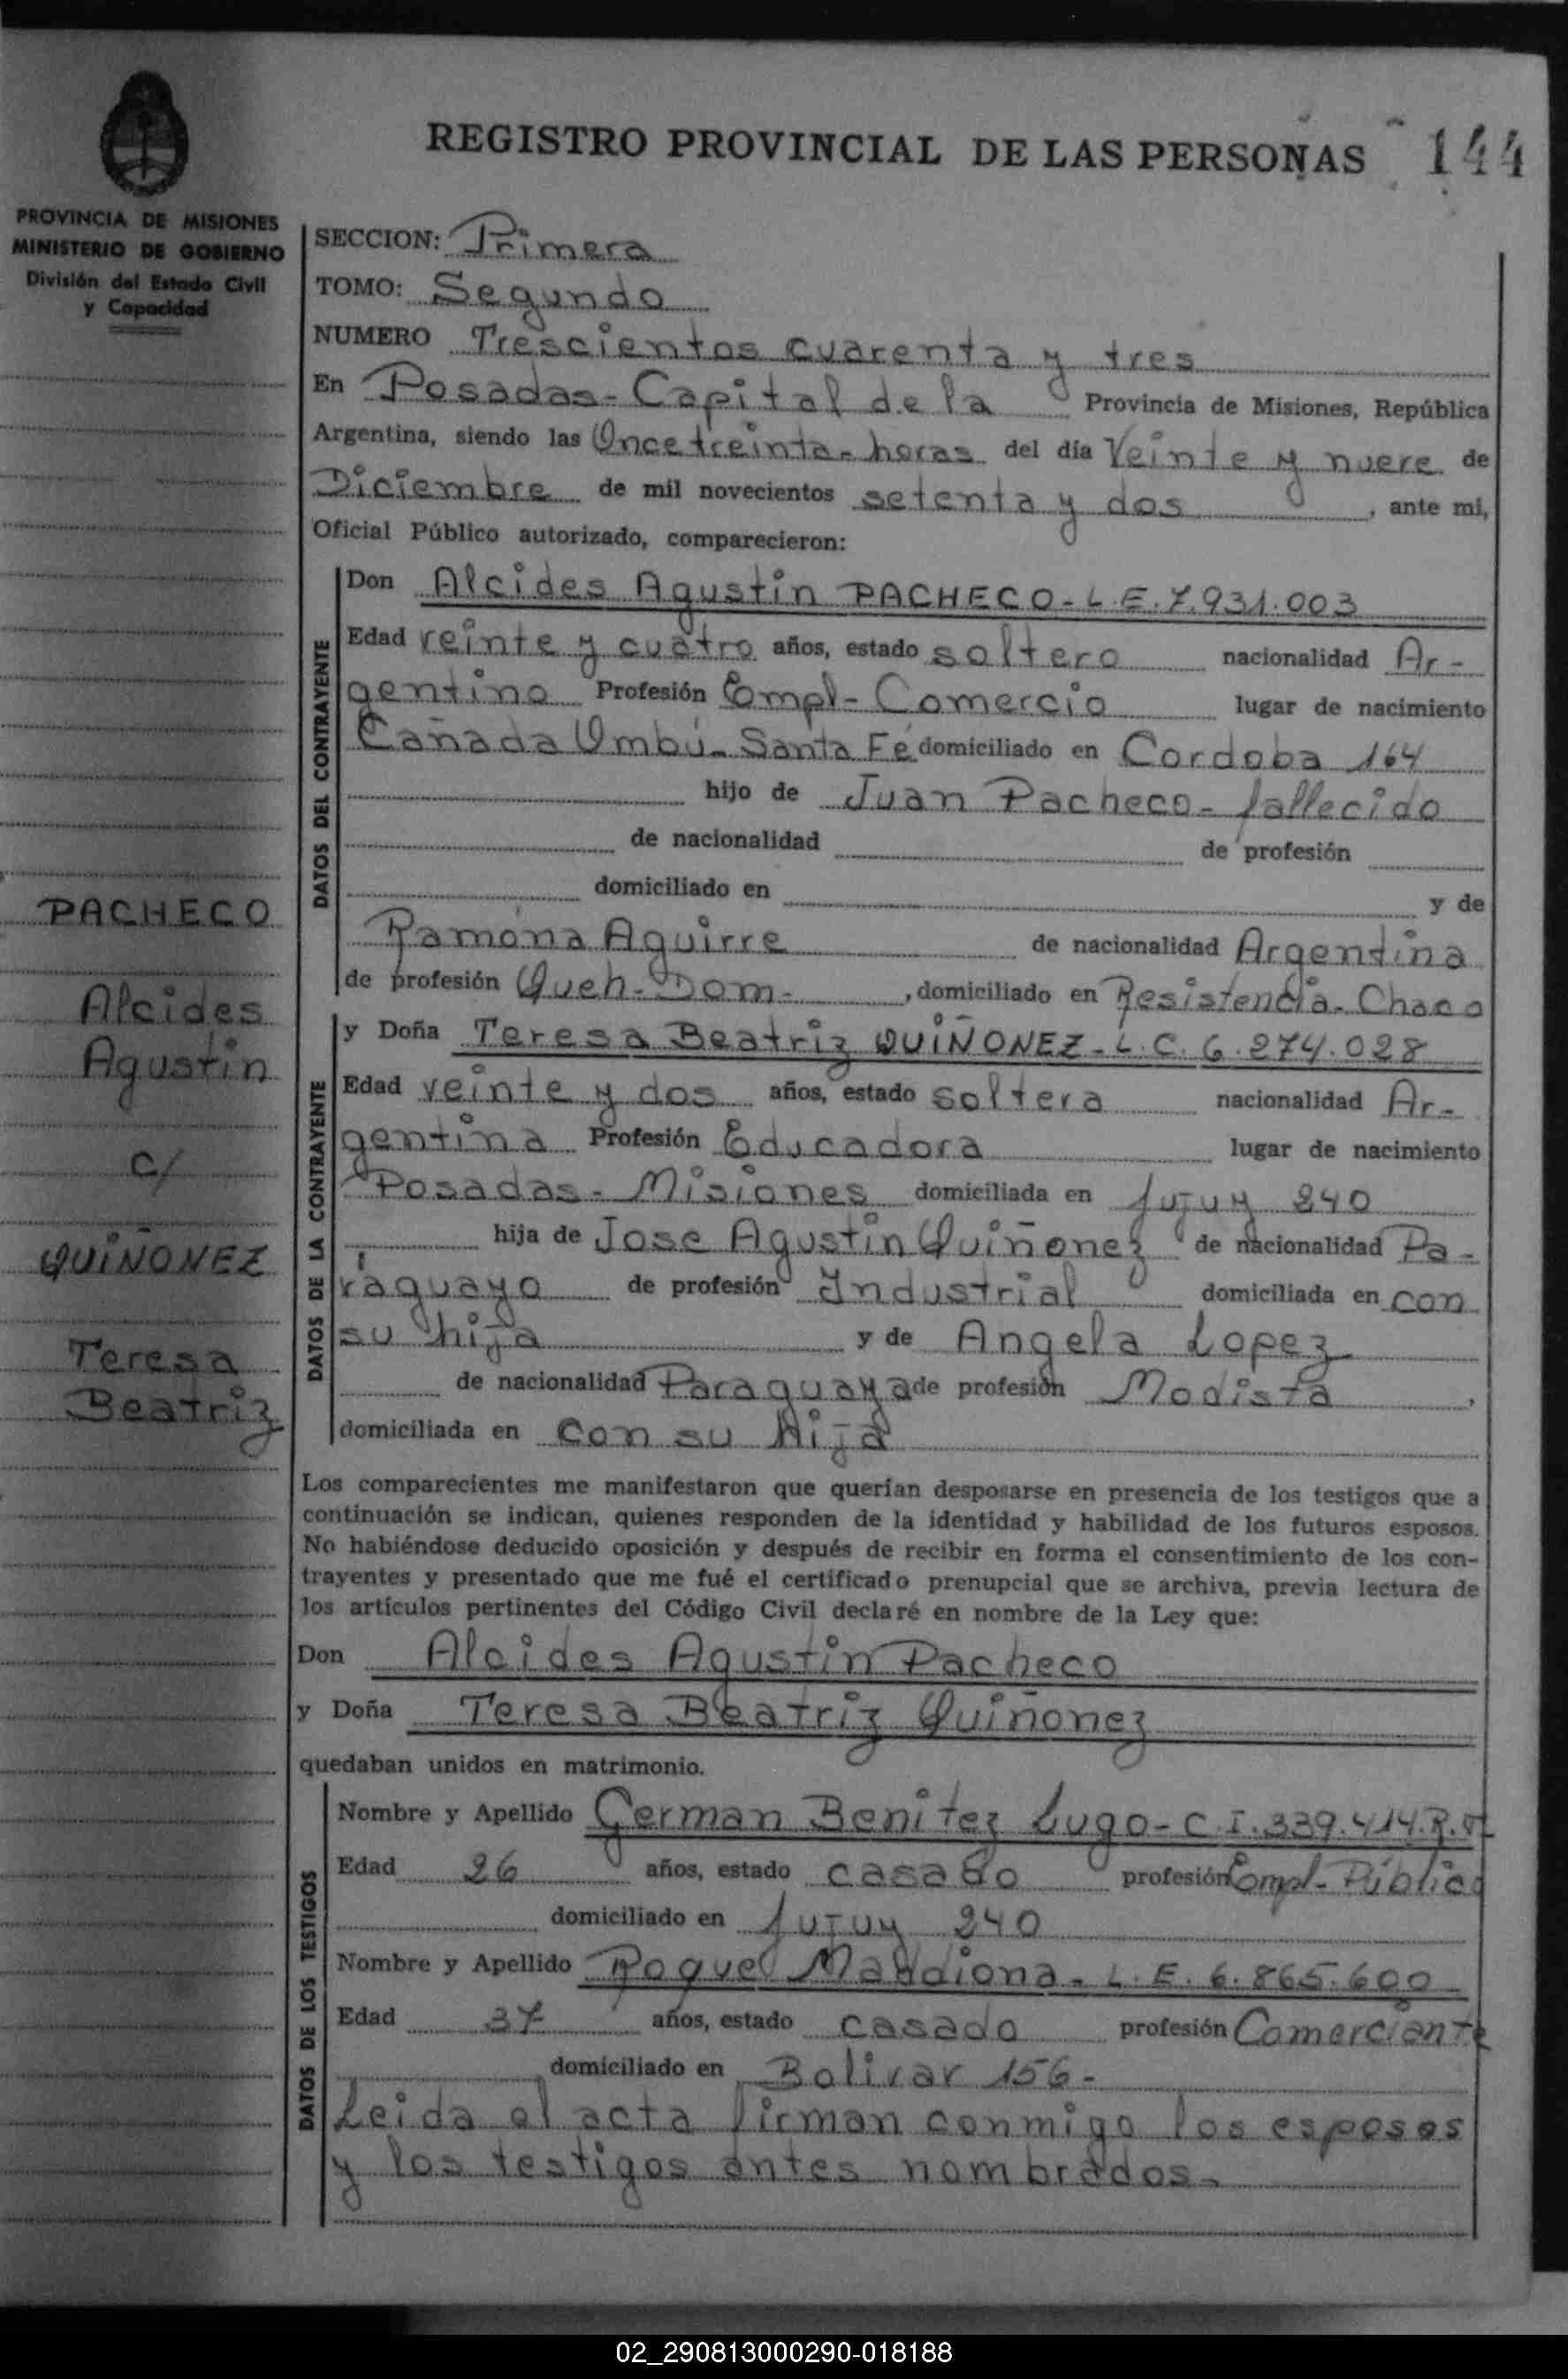 REGISTRO PROVINCIAL DE LAS PERSONAS 144
PROVINCIA DE MISIONES
MINISTERIO DE GOBIERNO
División del Estado Civil
y Capacidad
PACHECO
Alcides
Agustin
c/
QUIÑONEZ
Teresa
Beatriz
SECCION: Primera
TOMO: Segundo
NUMERO Trescientos cuarenta y tres
En Posadas - Capital de la Provincia de Misiones, República
Argentina, siendo las Once treinta - horas del día Veinte y nueve de
Diciembre de mil novecientos setenta y dos, ante mi,
Oficial Público autorizado, comparecieron:
DATOS DEL CONTRAYENTE
Don Alcides Agustin PACHECO - L.E. 7.931.003
Edad veinte y cuatro años, estado soltero nacionalidad Ar-
gentino Profesión Empl - Comercio lugar de nacimiento
Cañada Ombú - Santa Fé domiciliado en Cordoba 164
hijo de Juan Pacheco - fallecido
de nacionalidad de profesión
domiciliado en y de
Ramona Aguirre de nacionalidad Argentina
de profesión Queh - Dom -, domiciliado en Resistencia - Chaco
DATOS DE LA CONTRAYENTE
y Doña Teresa Beatriz QUIÑONEZ - L.C. 6.274.028
Edad veinte y dos años, estado soltera nacionalidad Ar-
gentina Profesión Educadora lugar de nacimiento
Posadas - Misiones domiciliada en Jujuy 240
hija de Jose Agustin Quiñonez de nacionalidad Pa-
raguayo de profesión Industrial domiciliada en con
su hija y de Angela Lopez
de nacionalidad Paraguaya de profesión Modista,
domiciliada en con su hija
Los comparecientes me manifestaron que querían desposarse en presencia de los testigos que a
continuación se indican, quienes responden de la identidad y habilidad de los futuros esposos.
No habiéndose deducido oposición y después de recibir en forma el consentimiento de los con-
trayentes y presentado que me fué el certificado prenupcial que se archiva, previa lectura de
los artículos pertinentes del Código Civil declaré en nombre de la Ley que:
Don Alcides Agustin Pacheco
y Doña Teresa Beatriz Quiñonez
quedaban unidos en matrimonio.
DATOS DE LOS TESTIGOS
Nombre y Apellido German Benitez Lugo - C.I. 339.414.
Edad 26 años, estado casado profesión Empl - Público
domiciliado en Jujuy 240
Nombre y Apellido - L.E. 6.865.600
Edad 37 años, estado casado profesión Comerciante
domiciliado en Bolivar 156 -
Leida el acta firman conmigo los esposos
y los testigos antes nombrados -
02_290813000290-018188